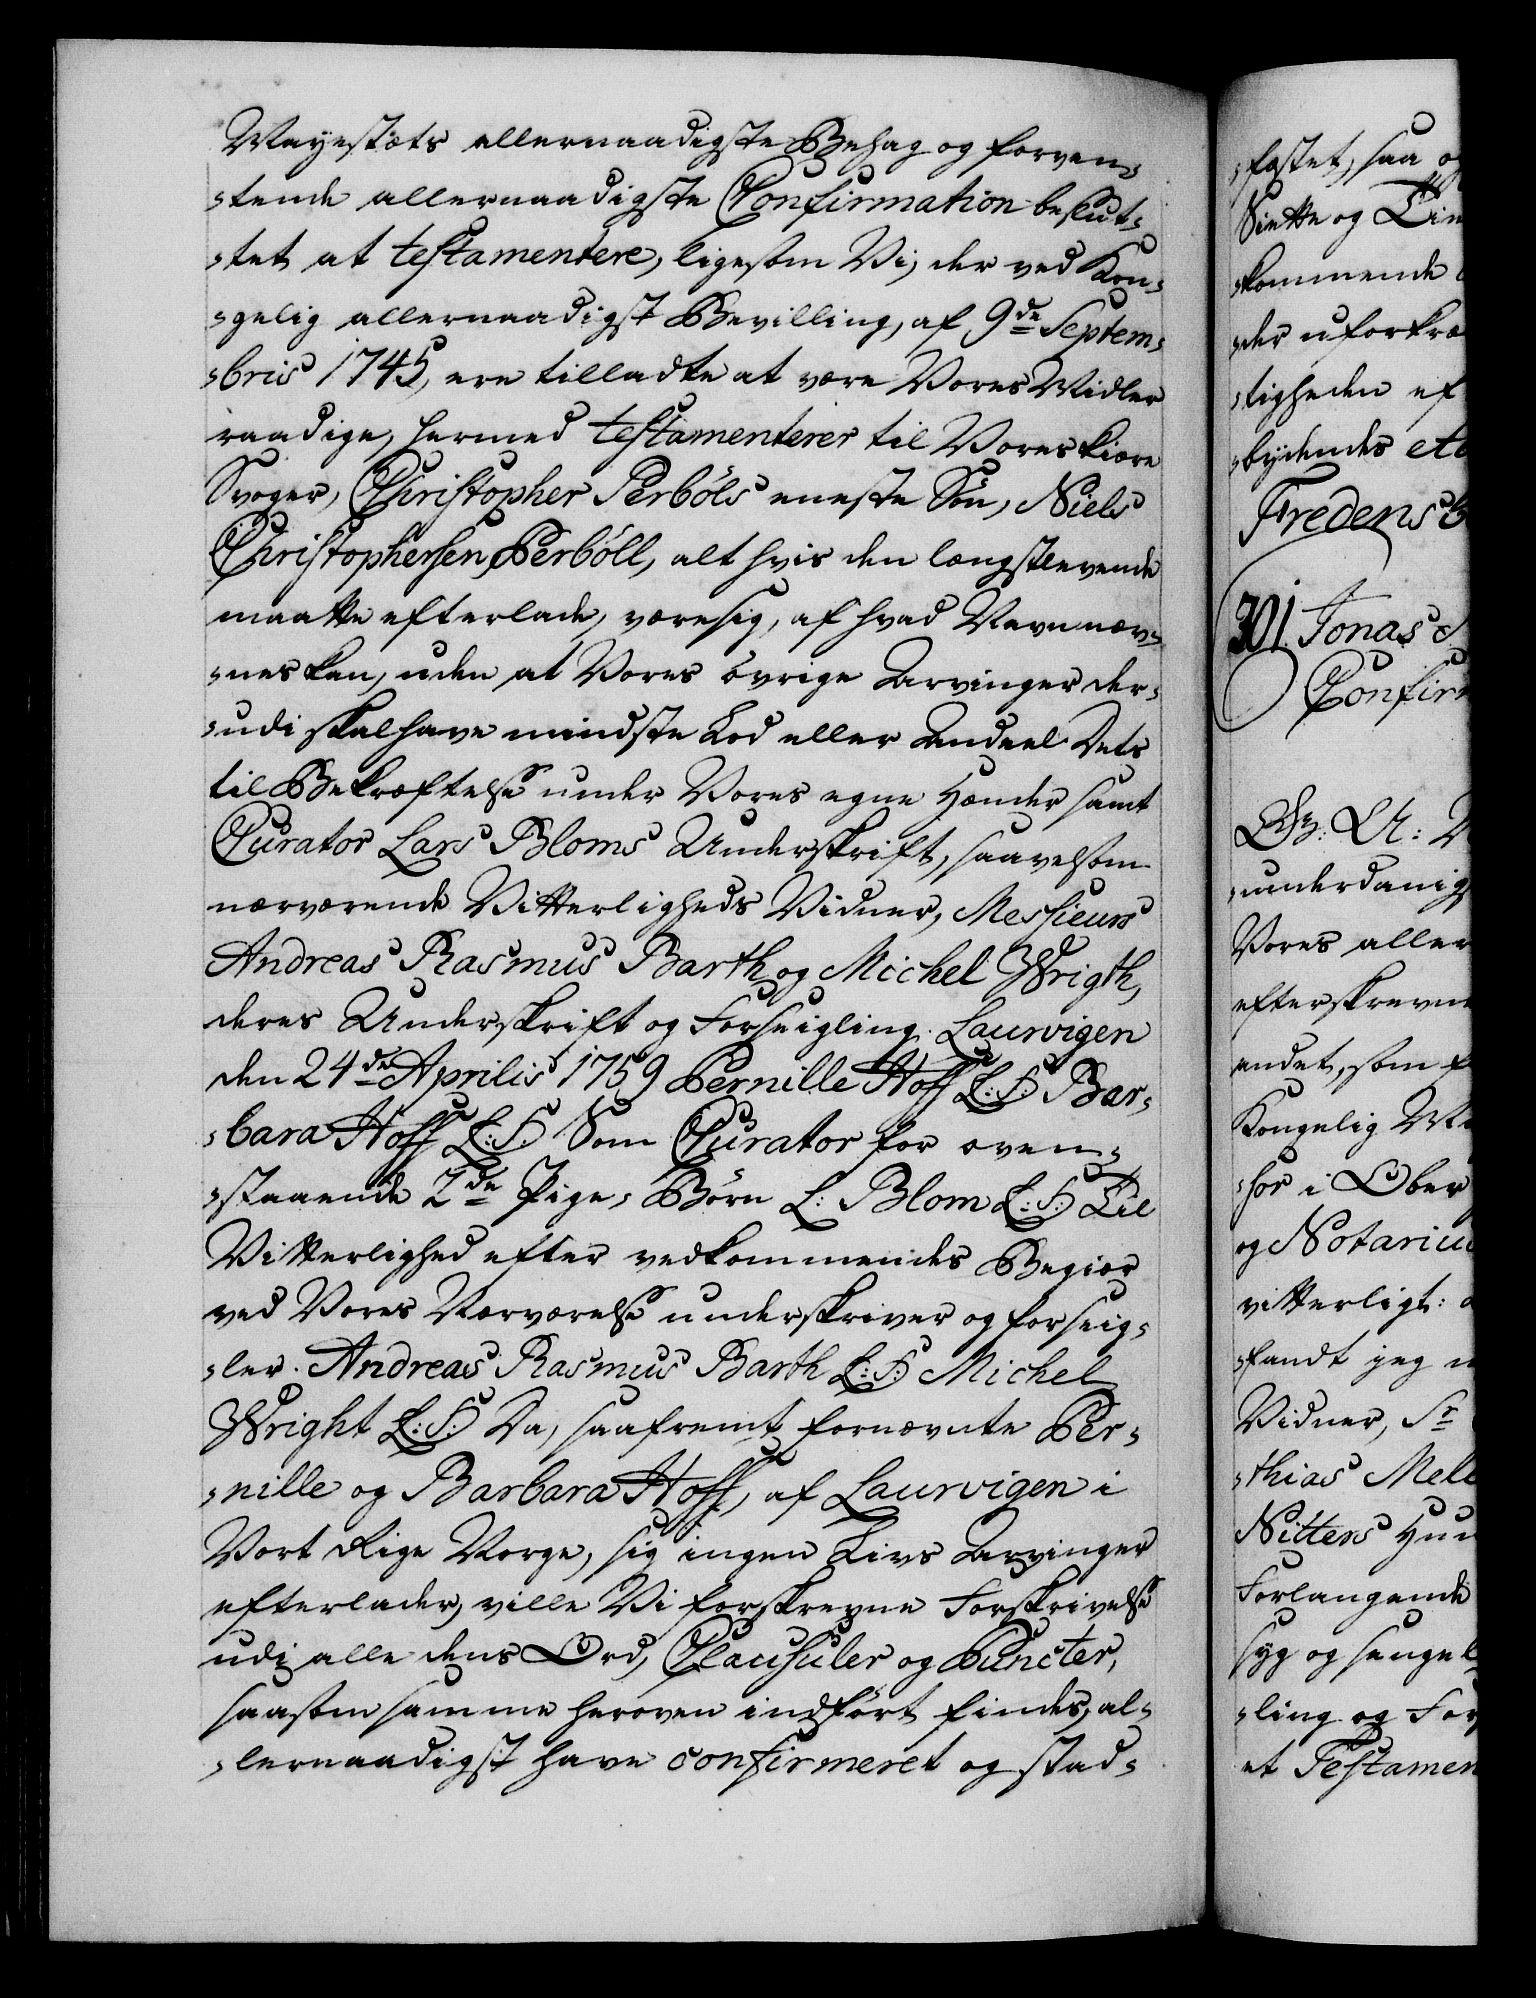 Mayestæts allernaadigste Behag og forven-
-tende allernaadigste Confirmation beslut-
-tet at testamentere, ligesom Vi, der ved Kon-
-gelig allernaadigst Bevilling, af 9de Septem-
-bris 1745, ere tilladte at være Vores Midler
raadige, hermed testamenterer til Vores kiære
Svoger, Christopher Perböls eneste Sön, Niels
Christophersen Perböll, alt hvis den længstlevende
maatte efterlade, være sig, af hvad Navn næv-
-nes kan, uden at Vores övrige Arvinger der-
-udi skal have mindste Lod eller Andeel Dets
til Bekræftelse under Vores egne Hænder samt
Curator Lars Bloms Underskrift, saavelsom
nærværende Vitterligheds Vidner, Messieurs
Andreas Rasmus Barth og Michel Wrigth,
deres Underskrift og Forseigling. Laurvigen
den 24de Aprilis 1759 Pernille Hoff L:S: Bar-
-bara Hoff L:S: Som Curator for oven-
-staaende 2de Pige-Börn L: Blom L:S: Til
Vitterlighed efter vedkommendes Begiær
ved Vores Nærværelse underskriver og forseig-
-ler. Andreas Rasmus Barth L:S: Michel
Wright L:S: Da, saafremt fornævnte Per-
-nille og Barbara Hoff, af Laurvigen i
Vort Rige Norge, sig ingen Livs Arvinger
efterlader, ville Vi forskrevne Forskrivelse
udi alle dens Ord, Clausuler og Puncter,
saasom samme heroven indfört findes, al-
-lernaadigst have confirmeret og stad-
-fæstet, saa
Siette og
-kommende
-der uforkræ
-tigheden ef
-bydendes
Fredensb
301. Jonas
Confir
underdanig
Vores aller
efterskrevne
andet, som
Kongelig
-sor i Ober
og Notarius
vitterligt:
-fandt jeg
Vidner, Sr
-thias Mell
Nitters
Forlangende
syg og senge
-ling og For
et Testamen